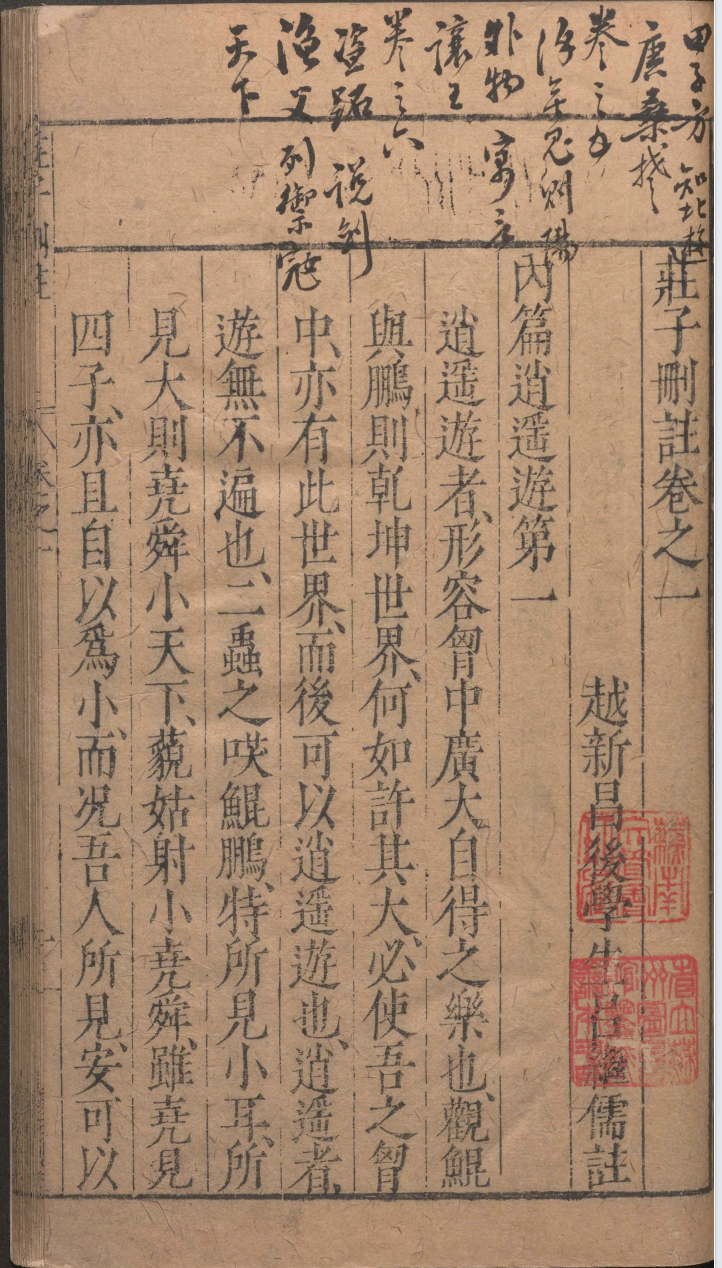 田子方 知北遊
庚桑楚
卷之五
徐無鬼 則陽
外物 寓言
讓王
卷之六
盜跖 說劍
漁父 列御寇
天下
莊子刪註卷之一
越新昌後學生呂繼儒註
內篇逍遙遊第一
逍遙遊者、形容胷中廣大自得之樂也、觀鯤
與鵬、則乾坤世界、何如許其大、必使吾之胷
中、亦有此世界、而後可以逍遙遊也、逍遙者、
遊無不遍也、二蟲之唉鯤鵬、特所見小耳、所
見大則堯舜小天下、藐姑射小堯舜、雖堯見
四子、亦且自以爲小、而况吾人所見、安可以
莊子刪註